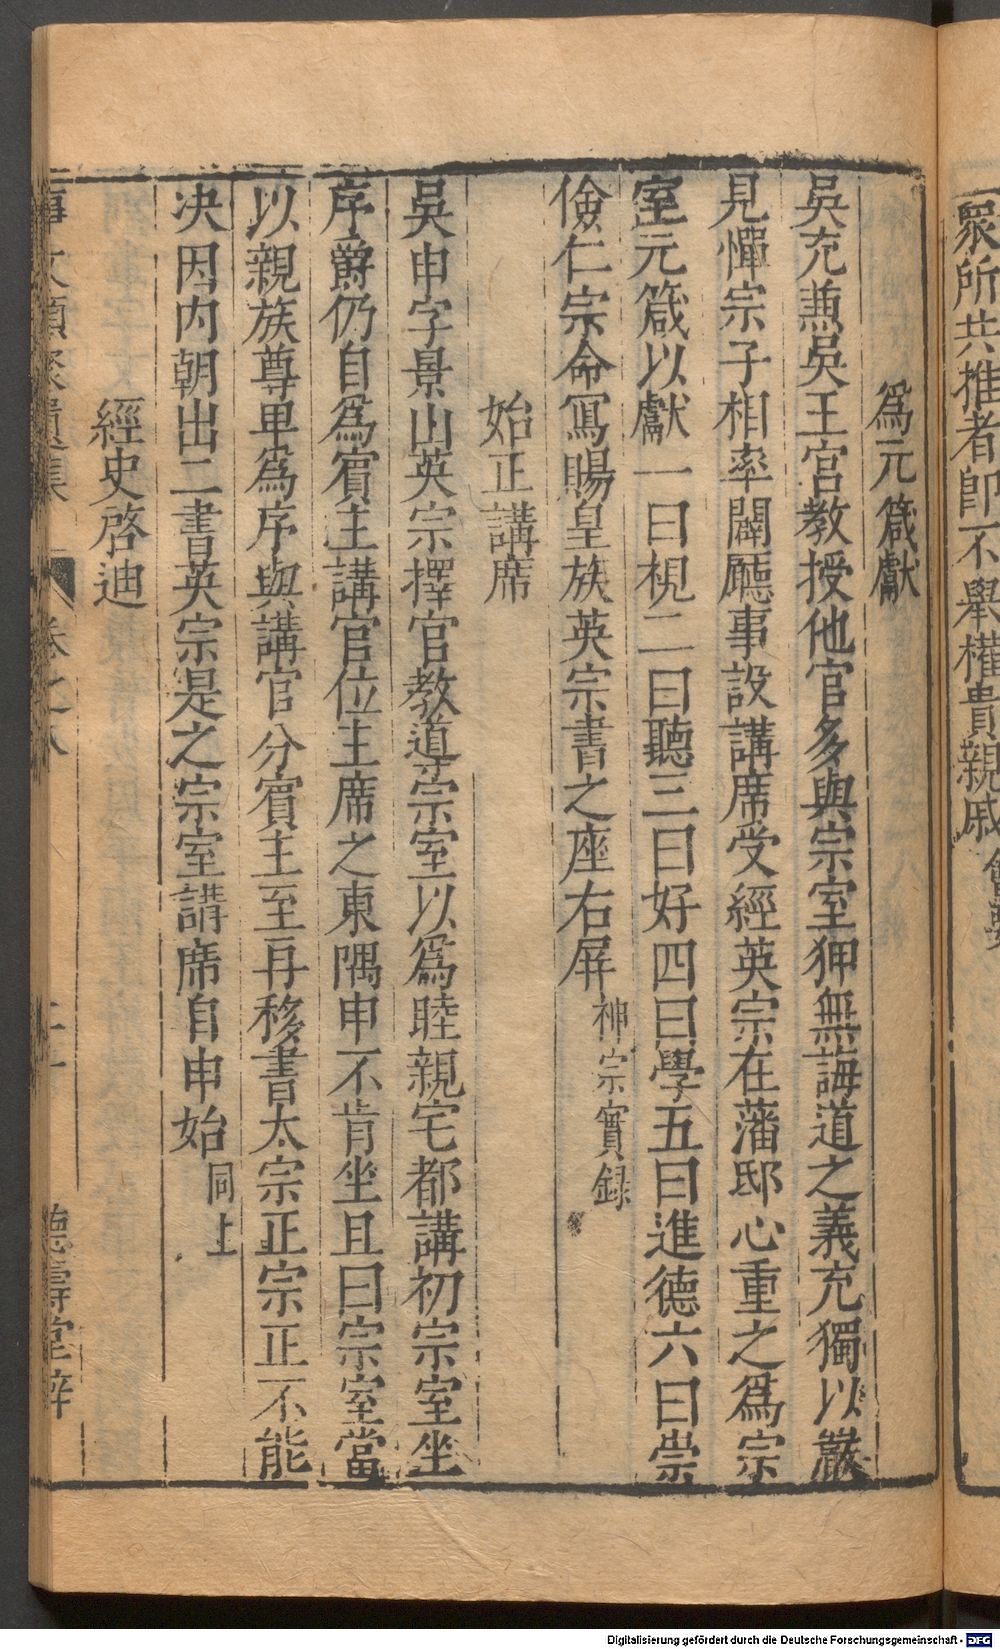 衆所共推者卽不舉權貴親戚
爲元箴獻
吳充兼吳王宮教授他官多與宗室狎無誨道之義充獨以嚴
見憚宗子相率闢廳事設講席受經英宗在藩邸心重之爲宗
室元箴以獻一曰視二曰聽三曰好四曰學五曰進德六曰崇
儉仁宗命寫賜皇族英宗書之座右屏神宗實録
始正講席
吳申字景山英宗擇官教道宗室以爲睦親宅都講初宗室坐
序爵仍自爲賓主講官位主席之東隅申不肯坐且曰宗室當
以親族尊卑爲序與講官分賓主至再移書太宗正宗正不能
决因内朝出二書英宗是之宗室講席自申始同上
經史啓迪
事文類聚遺集 卷之八 二十 德壽堂梓
Digitalisierung gefördert durch die Deutsche Forschungsgemeinschaft - DFG